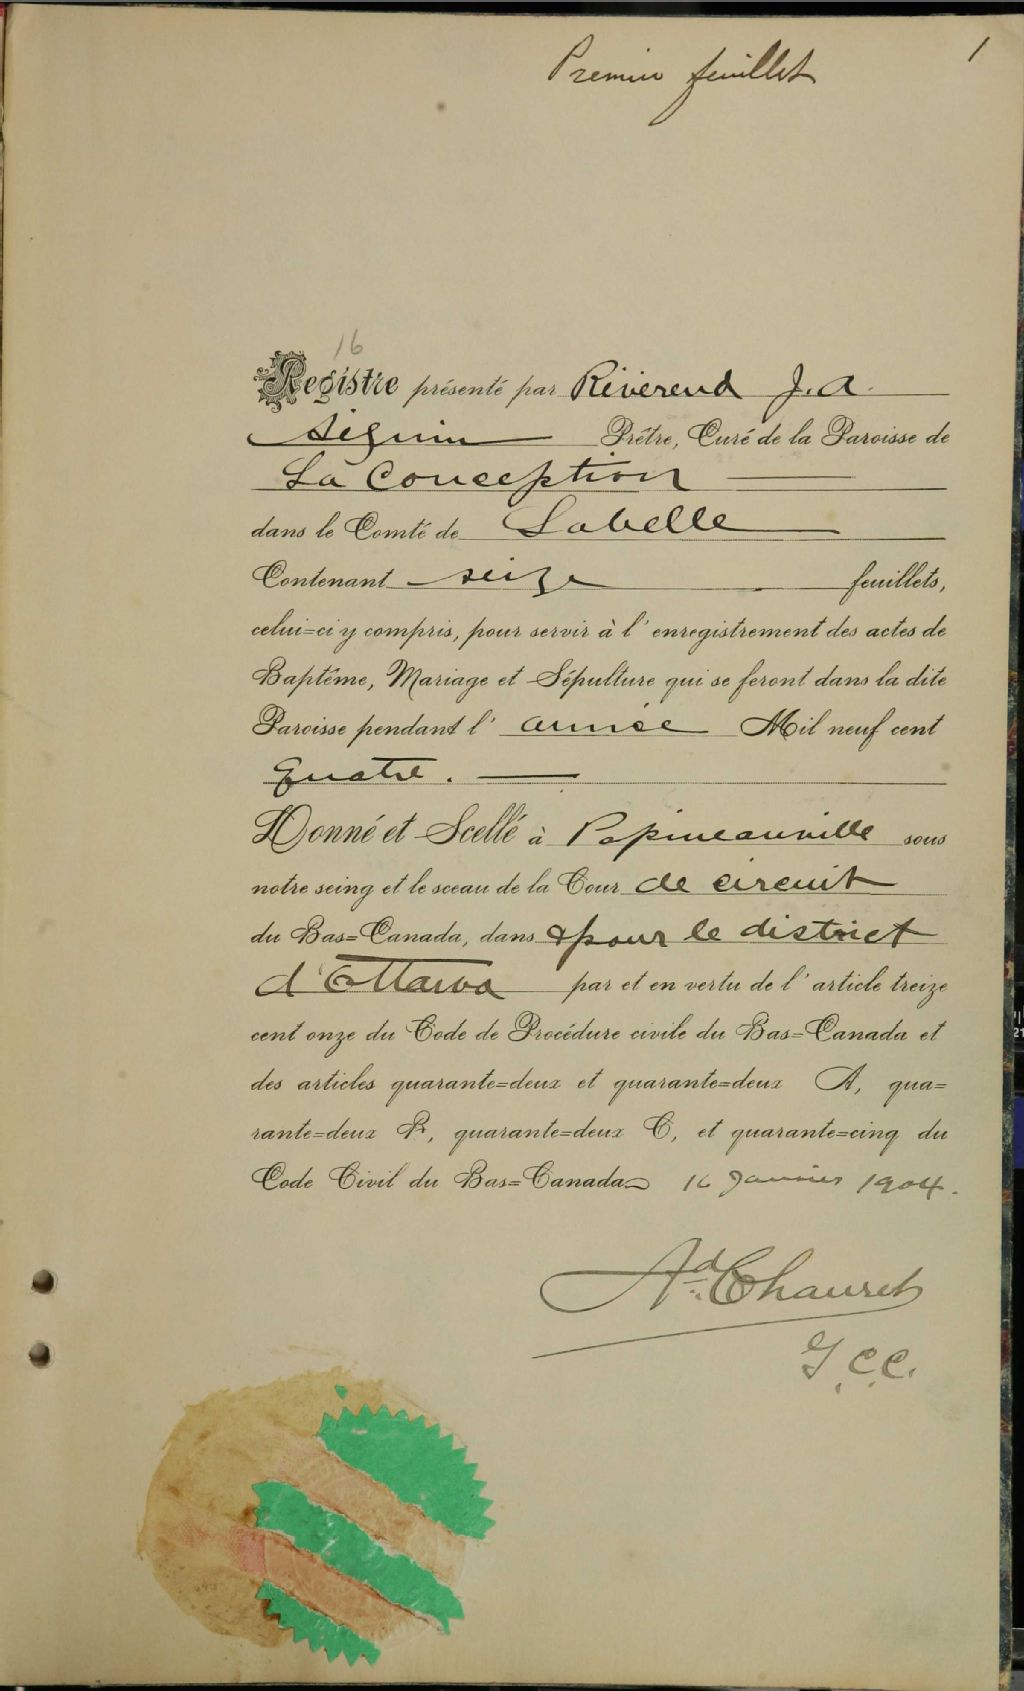 Premier feuillet
1
16
Registre présenté par Révérend J. A.
Séguin Prêtre, Curé de la Paroisse de
La Conception
dans le Comté de Labelle
Contenant seize feuillets,
celui=ci y compris, pour servir à l'enregistrement des actes de
Baptême, Mariage et Sépulture qui se feront dans la dite
Paroisse pendant l'année Mil neuf cent
quatre.
Donné et Scellé à Papineauville sous
notre seing et le sceau de la Cour de circuit
du Bas=Canada, dans & pour le district
d'Ottawa par et en vertu de l'article treize
cent onze du Code de Procédure civile du Bas=Canada et
des articles quarante=deux et quarante=deux A, qua=
rante=deux B, quarante=deux C, et quarante=cinq du
Code Civil du Bas=Canada 16 Janvier 1904.
Ad. Chauret
G.C.C.